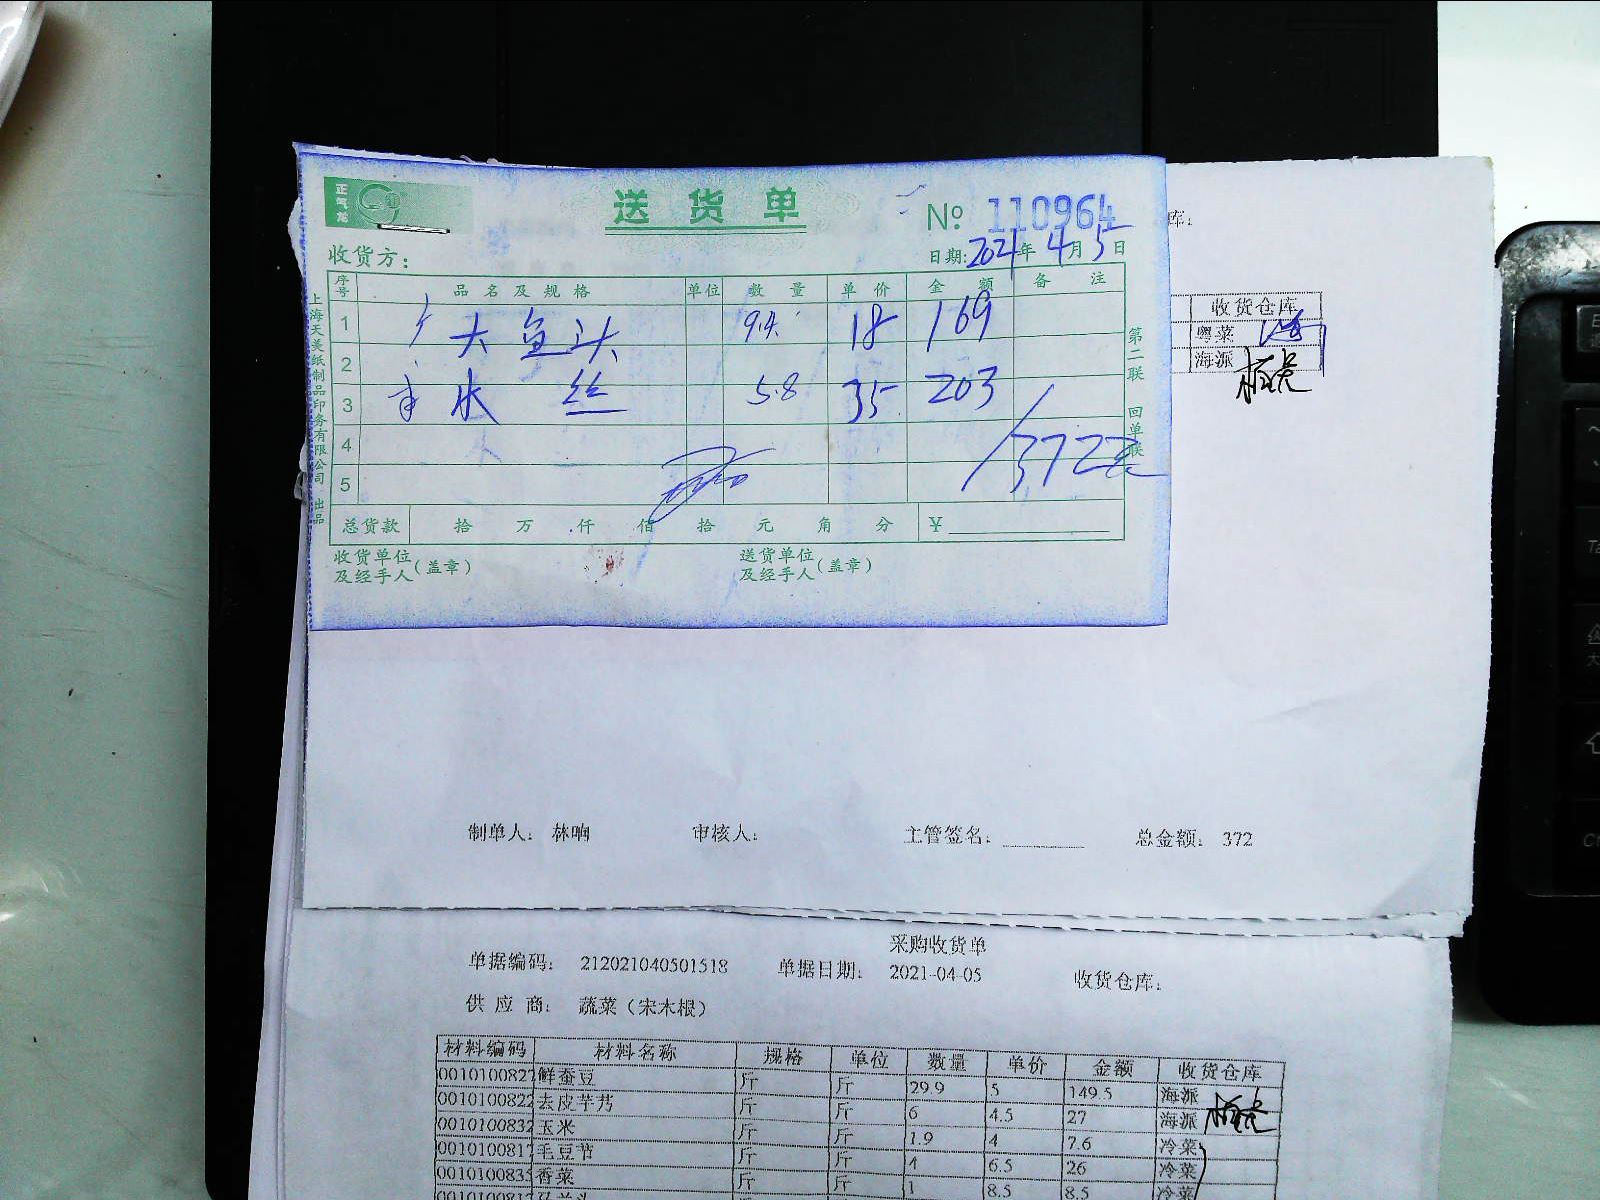 正气龙
送货单
№ 110964
库:
收货方:
日期: 2021年 4月 5日
序号 品名及规格 单位 数量 单价 金额 备注
1 大鱼头 9.4 18 169
2
3 水 丝 5.8 35 203
4
5
372元
总货款 拾 万 仟 佰 拾 元 角 分 ¥
收货单位及经手人(盖章) 送货单位及经手人(盖章)
上海天美纸制品印务有限公司 出品
第二联 回单联
收货仓库
粤菜
海派
制单人: 林响 审核人: 主管签名: 总金额: 372
采购收货单
单据编码: 212021040501518 单据日期: 2021-04-05 收货仓库:
供应商: 蔬菜(宋木根)
材料编码 材料名称 规格 单位 数量 单价 金额 收货仓库
0010100827 鲜蚕豆 斤 斤 29.9 5 149.5 海派
0010100822 去皮芋艿 斤 斤 6 4.5 27 海派
0010100832 玉米 斤 斤 1.9 4 7.6 冷菜
0010100817 毛豆节 斤 斤 4 6.5 26 冷菜
0010100835 香菜 斤 斤 1 8.5 8.5 冷菜